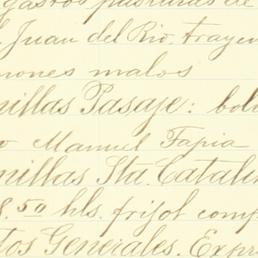 gastos pasturas de
Juan del Rio, trayen
malos
nillas Pasaje: bol
Manuel Tapia
nillas Sta. Catali
8.50 hls. frijol comp
tos Generales. Expr